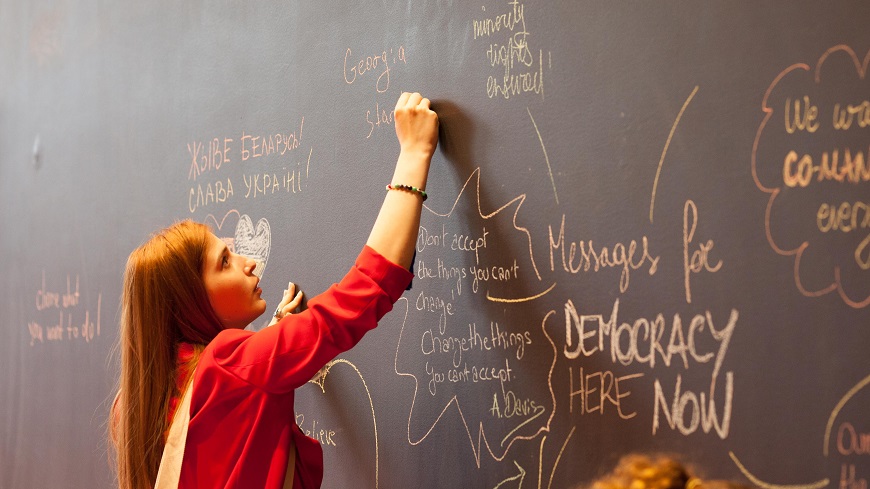 minority
rights
ensured!
Georgia
ЖЫВЕ БЕЛАРУСЬ!
СЛАВА УКРАЇНІ!
share what
you want to do!
Don't accept
the things you can't
change!
Change the things
you can't accept.
A. Davis
Believe
Messages for
DEMOCRACY
HERE NOW
We wa
CO-MAN
every